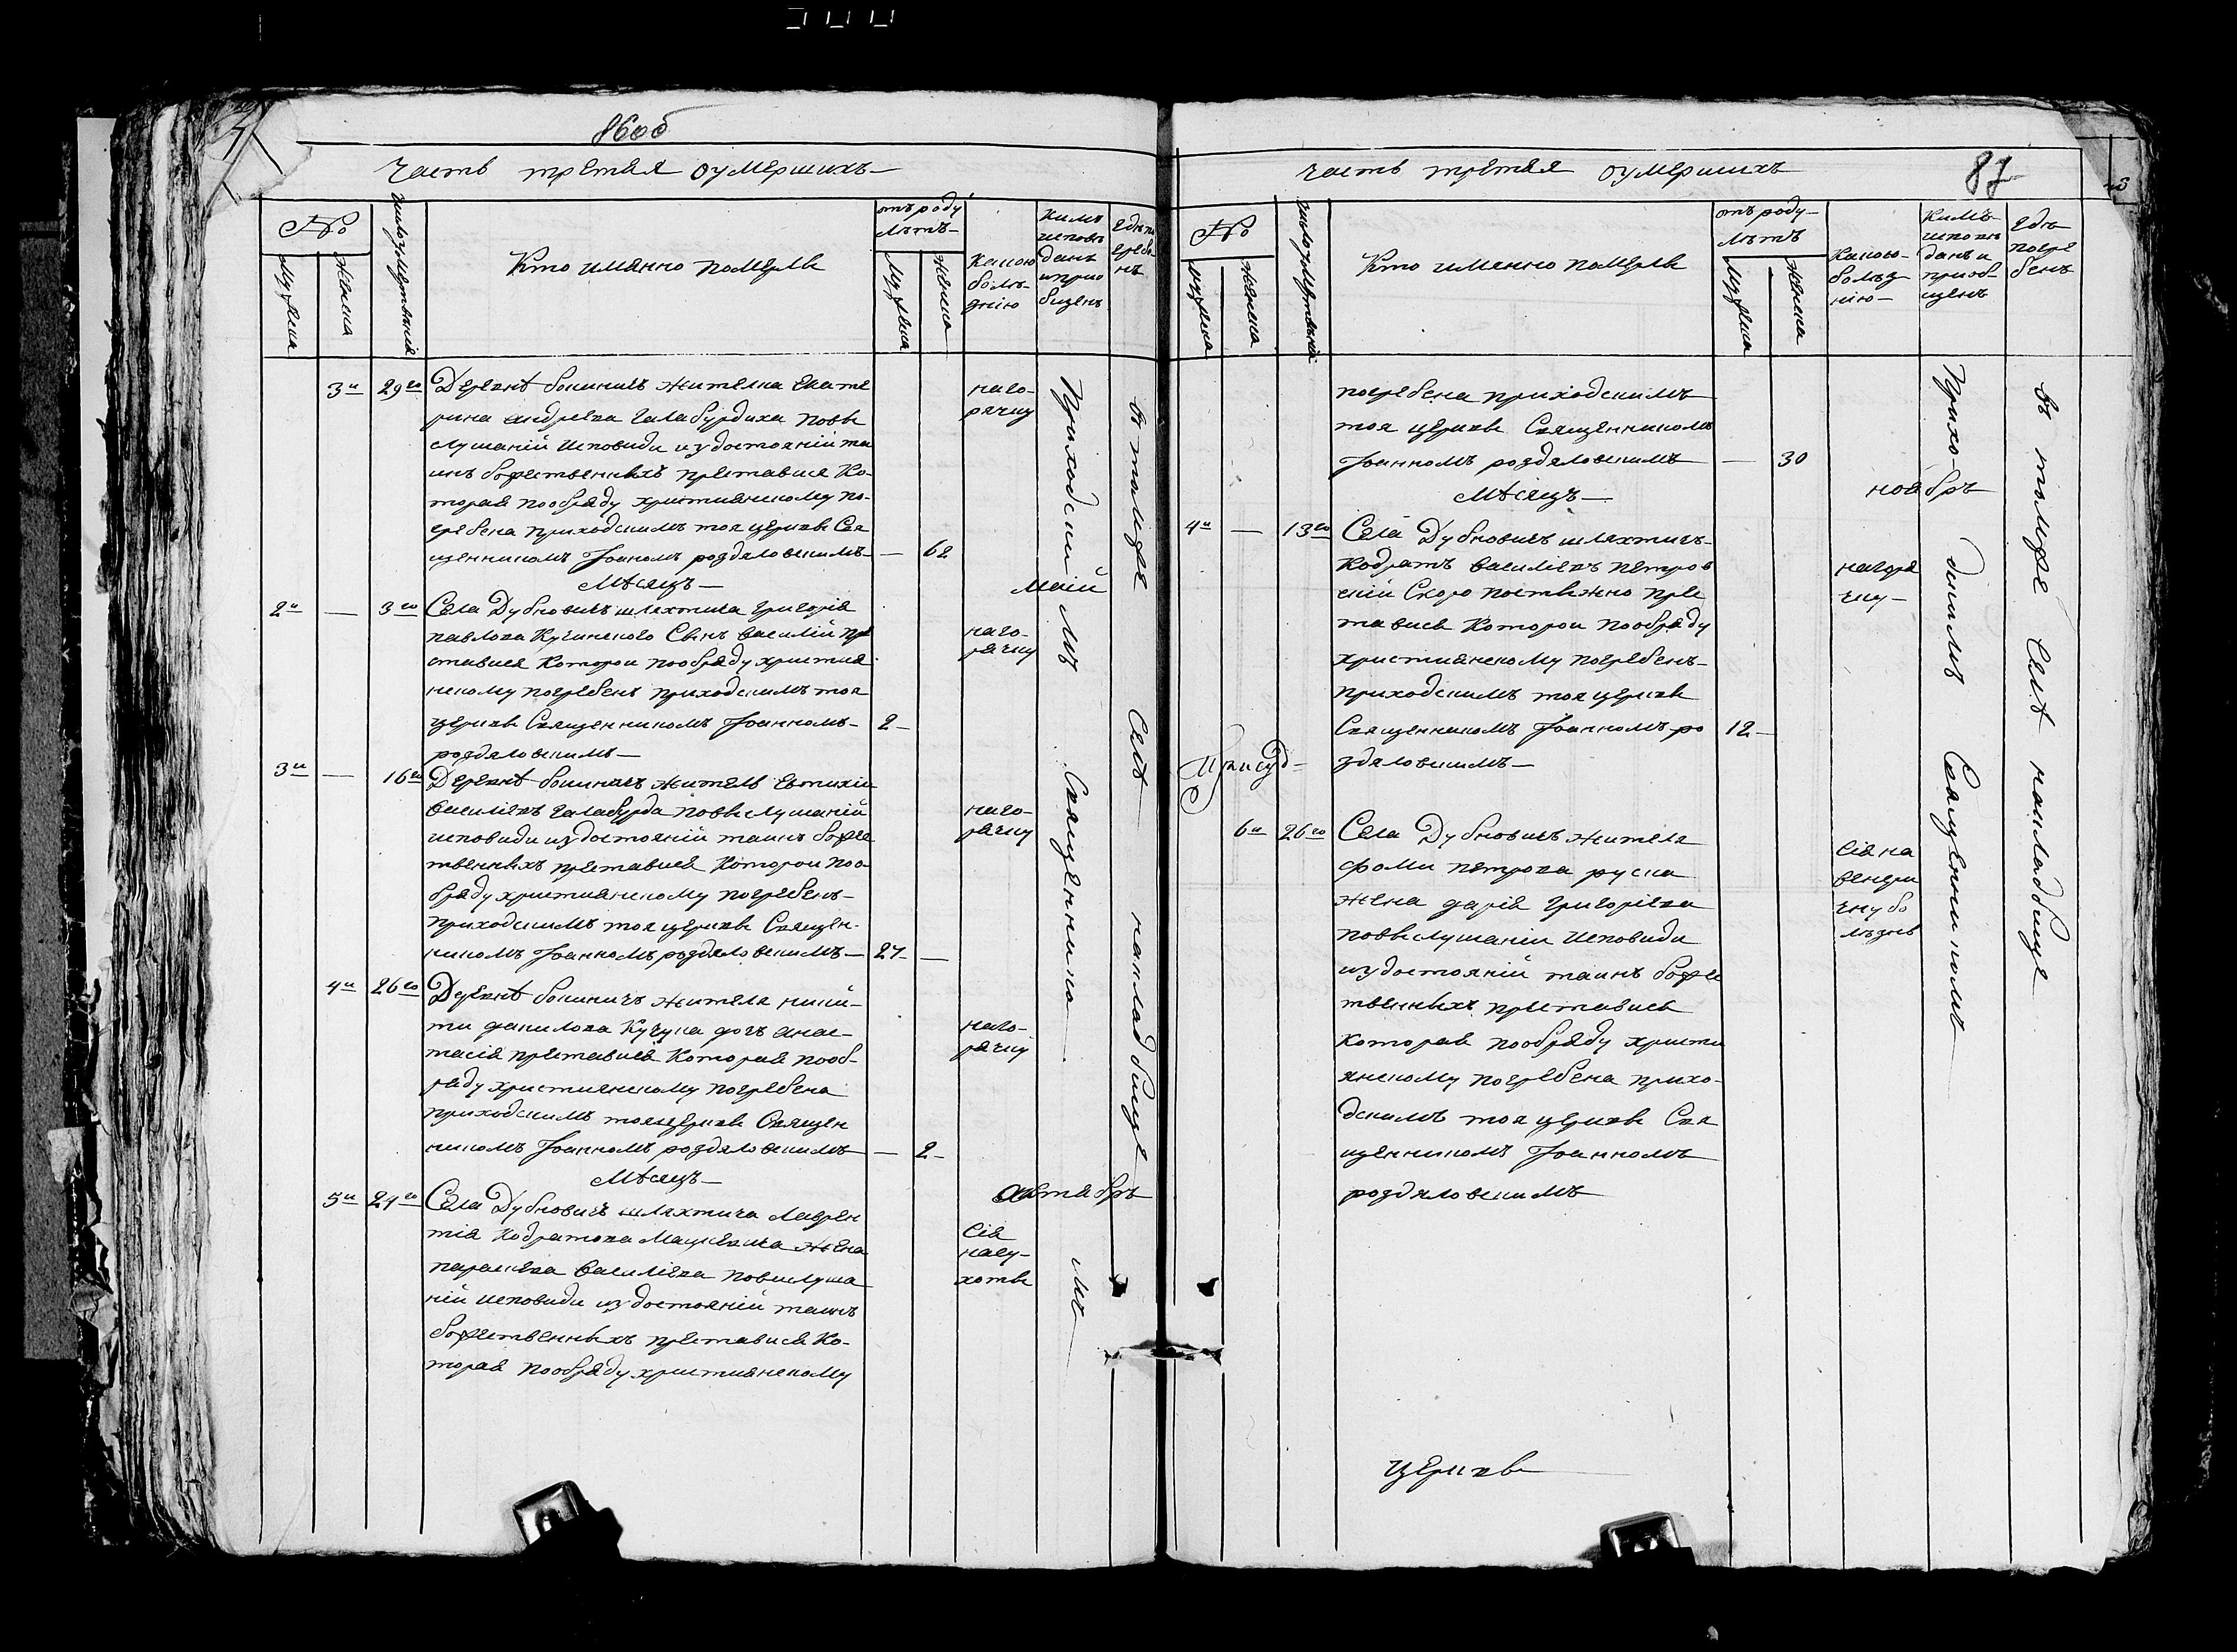 86об
часть третяя оумершихъ
№
мужеска
женска
число умертвія
Кто имянно померлъ
отъ роду
лѣтъ
мужеска
женска
Какою
болѣ-
знію
Кимъ
исповѣ
данъ
и прио
бщенъ
3и 29го Деревнѣ бокиничъ жителка екате
рина андреева галабурдиха повы
слушаній исповиди изъдостояній та
инъ божественныхъ преставися Ко-
торая пообряду християнскому по-
гребена приходскимъ тоя церкви Свя
щенникомъ Іоаномъ роздяловскимъ — 62
наго-
рячку
Мѣсяцъ — маій
2и — 3го Села Дубновичъ шляхтича григорія
павлова Кучинского Сынъ василій пре
ставися Которои пообряду христия
нскому погребенъ приходскимъ тоя
церкви Священникомъ Іоанномъ 2 —
роздяловскимъ —
наго-
рячку
3и — 16го Деревнѣ бокиничъ житель евтихіи
василіевъ галабурда повыслушаній
исповиди издостояній таинъ боже
твенныхъ преставися Которои поо
бряду християнскому погребенъ
приходскимъ тоя церкви Священ-
никомъ Іоанномъ роздяловскимъ — 27 —
наго-
рячку
4и 26го Деревнѣ бокиничъ жителя ники-
ти данилова Кучука дочъ анас-
тасія преставися Которая пооб-
ряду християнскому погребена
приходскимъ тоя церкви Священ
никомъ Іоанномъ роздяловскимъ — 2 —
наго-
рячку
Мѣсяцъ — октябръ
5и 24го Села Дубновичъ шляхтича лаврен
тія Кодратова Мацкевича жена
параскева василіева повислуша
ній исповиди издостояній таинъ
божественныхъ преставися Ко-
торая пообряду християнскому
Сія
насу-
хоты
Приходскимъ Священникомъ
въ томже Селѣ накладбище
часть третяя оумершихъ
87
№
мужеска
женска
число умертвія
Кто именно померлъ
отъ роду
лѣтъ
мужеска
женска
Какою
болѣз
нію
Кимъ
исповѣ
данъ и
приоб-
щенъ
Гдѣ
погре
бенъ
погребена приходскимъ
тоя церкви Священникомъ
Іоанномъ роздяловскимъ — 30
Мѣсяцъ — ноябръ
4и — 13го Села Дубновичъ шляхтичъ
Кодратъ василіевъ петров
скій Скоро постижно пре
тависъ Которои пообряду
християнскому погребенъ
приходскимъ тоя церкви
Священникомъ Іоанномъ ро 12 —
здяловскимъ —
нагоря
чку —
6и 26го Села Дубновичъ жителя
фоми петрова руска
жена дарія григоріева
повыслушаніи исповиди
издостояній таинъ боже
твенныхъ преставися
Которая пообряду христи
янскому погребена прихо-
дскимъ тоя церкви Свя
щенникомъ Іоанномъ
роздяловскимъ
Сія на
венери
чну бо
лѣзнь
Приходскимъ Священникомъ
въ томже Селѣ накладбище
церкви